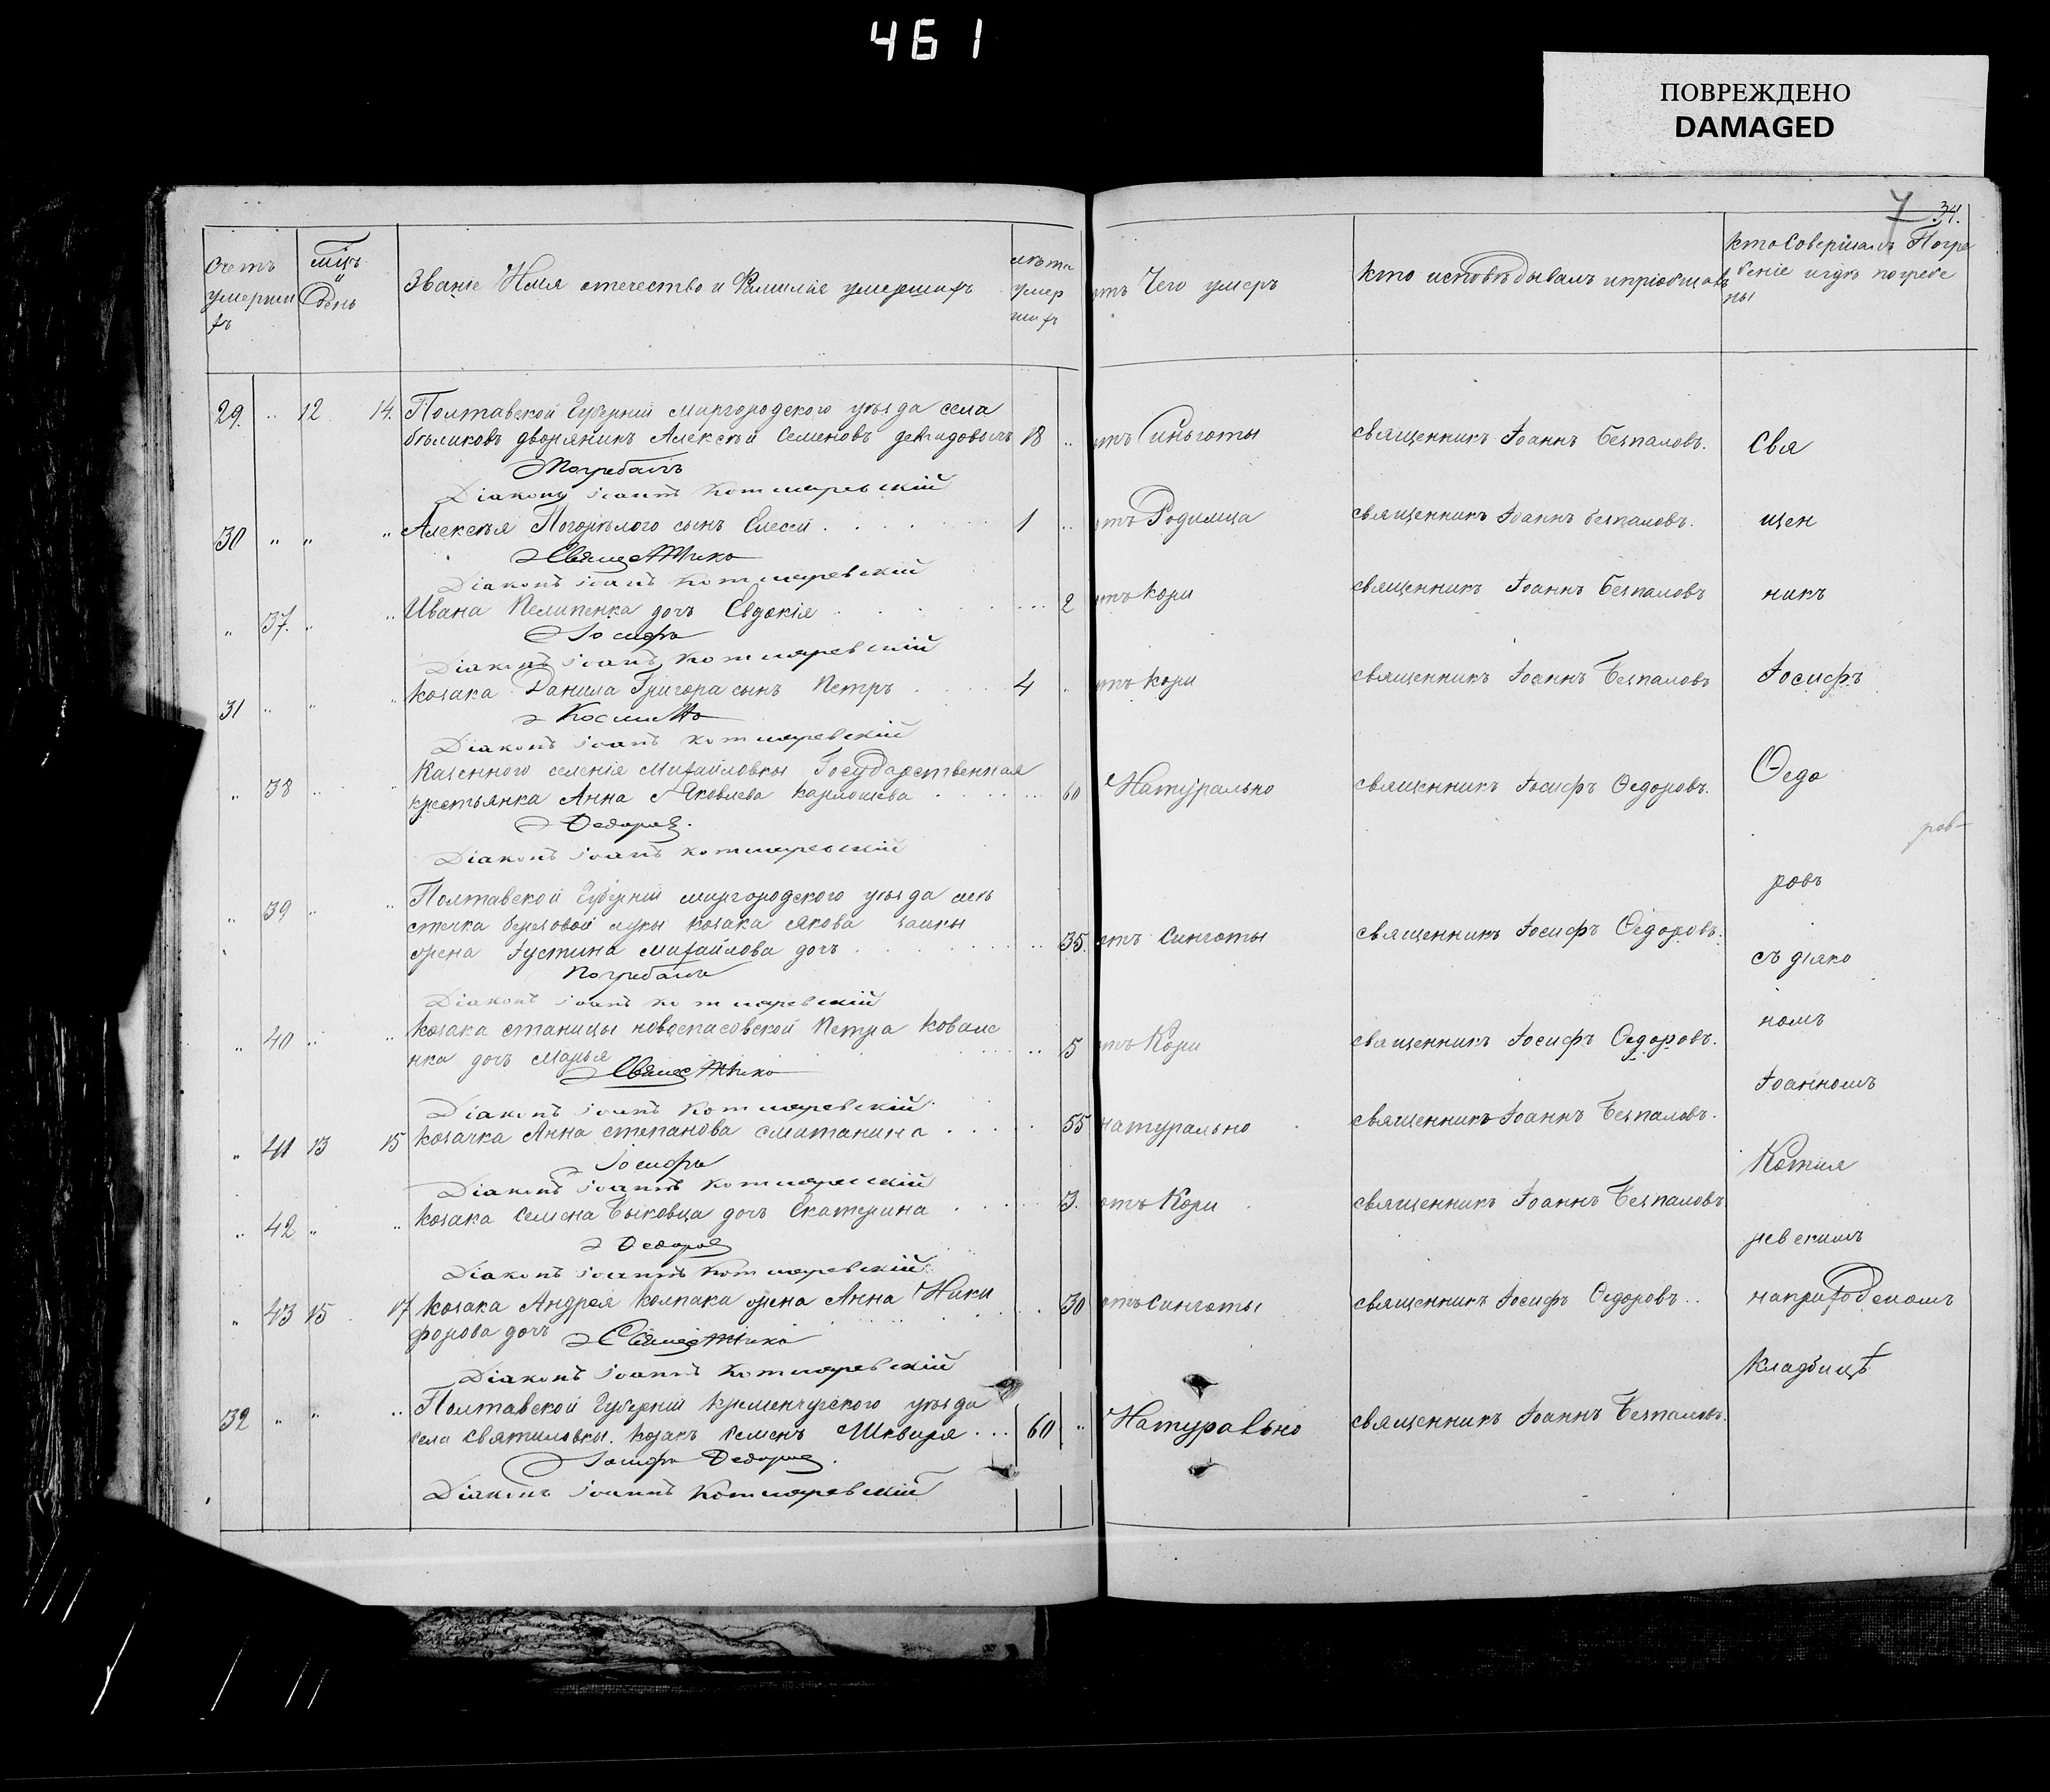 461
ПОВРЕЖДЕНО
DAMAGED
34.
Счетъ умершихъ
мцъ и День
Званіе Имя отечество и Фамилія умершихъ
лѣта умершихъ
отъ Чего умеръ
Кто исповѣдывалъ и пріобщалъ
Кто Совершалъ Погребеніе и гдѣ погребены
29. 12 14. Полтавской Губерніи миргородского уѣзда села
бѣликовъ дворянинъ Алексѣй Семеновъ 18 отъ Синьготы священникъ Іоаннъ Безпаловъ. Свя
Погребалъ
Діаконъ Іоаннъ Котляревскій
30 " " " Алексѣя Погорѣлого сынъ Елесей 1 отъ Родимца священникъ Іоаннъ безпаловъ. щен
Священникъ
Діаконъ Іоаннъ Котляревскій
" 37. " " Ивана Пелипенка дочъ Евдокія 2 отъ Кори священникъ Іоаннъ Безпаловъ никъ
Іосифъ
Діаконъ Іоаннъ Котляревскій
31 " " " козака Данила Григора сынъ Петръ 4 отъ кори священникъ Іоаннъ Безпаловъ Іосифъ
Діаконъ Іоаннъ Котляревскій
Казенного селенія Михайловки Государственная
" 38 " " крестьянка Анна Яковлева 60 Натурально священникъ Іосифъ Ѳедоровъ. Ѳедо
Ѳедоровъ.
ров
Діаконъ Іоаннъ Котляревскій
ровъ
" 39 " " Полтавской Губерніи миргородского уѣзда мѣ
стечка березовой луки козака Якова заики
жена Іустина Михайлова дочъ 35. отъ Синготы священникъ Іосифъ Ѳедоровъ.
съ діяко
Погребалъ
Діаконъ Іоаннъ Котляревскій
номъ
" 40 " " козака станицы новоспасовской Петра Ковале
нка дочъ Марья 5 отъ Кори священникъ Іосифъ Ѳедоровъ.
Священникъ
Іоанномъ
Діаконъ Іоаннъ Котляревскій
" 41 13 15 козачка Анна степанова сматанина 55 натурально священникъ Іоаннъ Безпаловъ.
Іосифъ
Котля
Діаконъ Іоаннъ Котляревскій
" 42 " " козака Семена Быковца дочъ Екатерина 3. отъ Кори священникъ Іоаннъ Безпаловъ
Ѳедоровъ
ревскимъ
Діаконъ Іоаннъ Котляревскій
" 43 15 17 козака Андрея Колпака жена Анна Ники
форова дочъ 30 отъ синготы священникъ Іосифъ Ѳедоровъ.
Священникъ
на приходскомъ
Діаконъ Іоаннъ Котляревскій
Кладбищѣ
32 " " " Полтавской Губерніи Кременчугского уѣзда
села Святиловки. козакъ Семенъ Шквиря 60 " Натурально священникъ Іоаннъ Безпаловъ.
Іосифъ Ѳедоровъ.
Діаконъ Іоаннъ Котляревскій